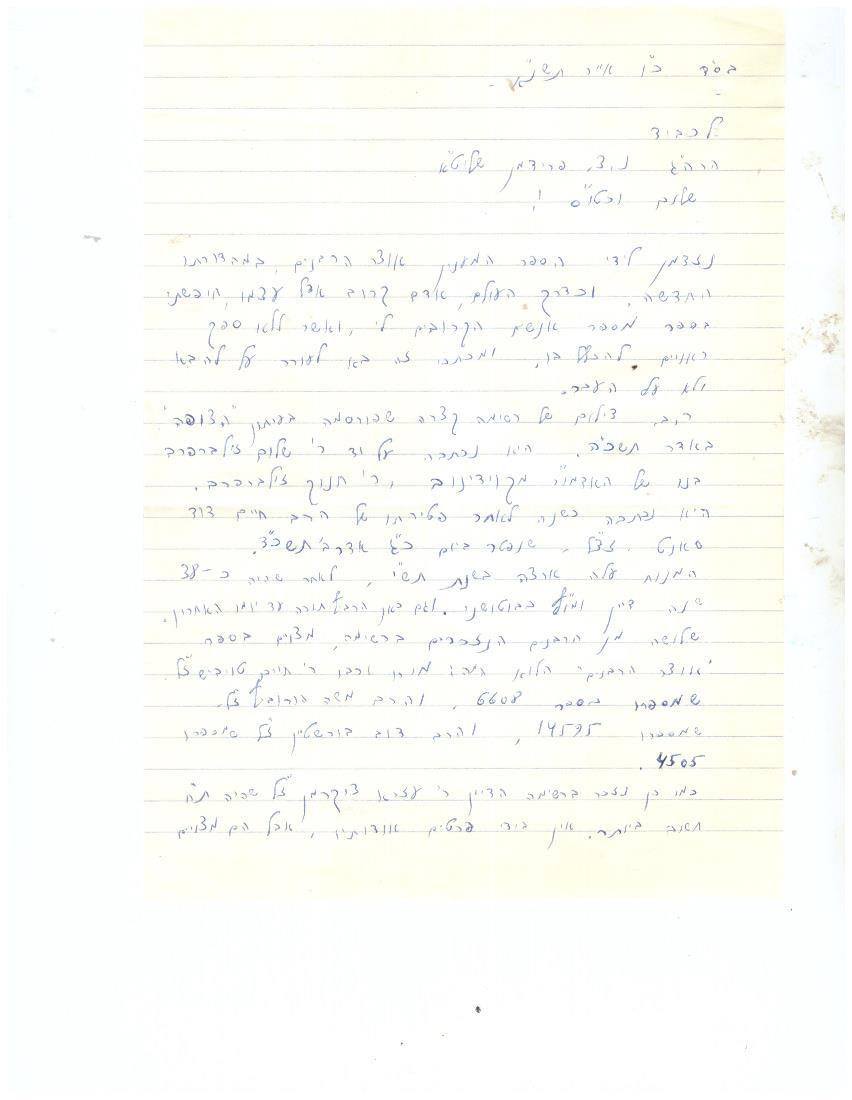 בס"ד כ"ו אייר תשנ"א -
לכביד
הרה"ג נ.צ. פרידמן שליט"א
שלום וכטו"ס !
נזדמן לידי הספר המענין אוצר הרבנים, במהדורתו
החדשה. וכדרך העולם, אדם קרוב אצל עצמו, חיפשתי
בספר מספר אנשים הקרובים לי, ואשר ללא ספק
ראויים להכלל בו, ומכתבי זה בא לעורר על להבא
ולא על העבר.
ר.ב. צילום של רשימה קצרה שפורסמה בעיתון "הצופה"
באדר תשכ"ה. היא נכתבה על יד ר' שלום זילברפרב
בנו של האדמו"ר מקוידינוב, ר' חנוך זילברפרב.
היא נכתבה כשנה לאחר פטירתו של הרב חיים דוד
סאנט. זצ"ל, שנפטר ביום כ"ג אדר ב' תשכ"ד.
המנוח עלה ארצה בשנת תש"י, לאחר שהיה כ-38
שנה דיין ומו"ץ בבוטושני. וגם כאן הרביץ תורה עד יומו האחרון.
שלושה מן הרבנים הנזכרים ברשימה, מצוים בספר
"אוצר הרבנים" הלוא המה: מורו ורבו ר' חיים טויביש ז"ל
שמספרו בספר 6608, והרב משה הורוביץ ז"ל.
שמספרו 14595, והרב דוב בורשטין ז"ל שמספרו
4505.
כמו כן נזכר ברשימה הדיין ר' עזרא צוקרמן ז"ל שהיה ת"ח
חשוב ביותר. אין בידי פרטים אודותיו, אבל הם מצוים